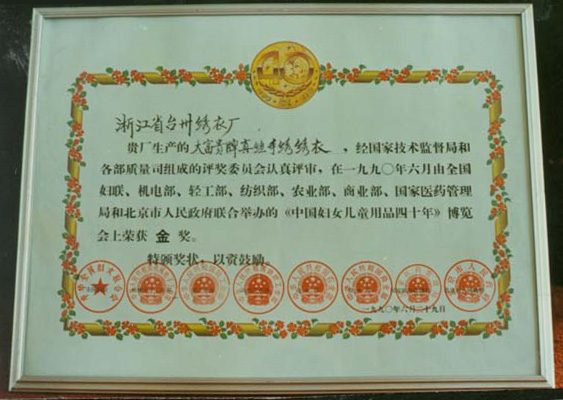 浙江省台州绣衣厂
贵厂生产的大富贵牌真丝手绣绣衣，经国家技术监督局和
各部质量司组成的评奖委员会认真评审，在一九九〇年六月由全国
妇联、机电部、轻工部、纺织部、农业部、商业部、国家医药管理
局和北京市人民政府联合举办的《中国妇女儿童用品四十年》博览
会上荣获 金 奖。
特颁奖状，以资鼓励。
一九九〇年六月二十九日